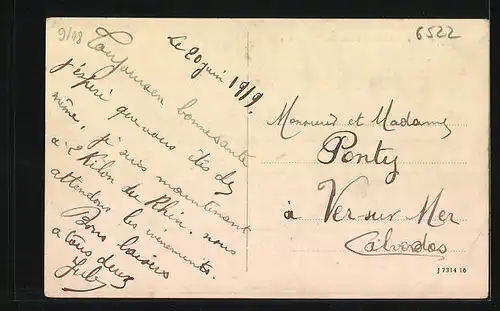 9/18
6522
Le 20 juin 1919.
Toujours en bonne santé
j'espère que vous êtes de
même, je suis maintenant
à 2 Kilom du Rhin. nous
attendons les événements.
Bons baisers
a tous deux
Monsieur et Madame
Ponty
à Ver-sur-Mer
Calvados
J 7314 16